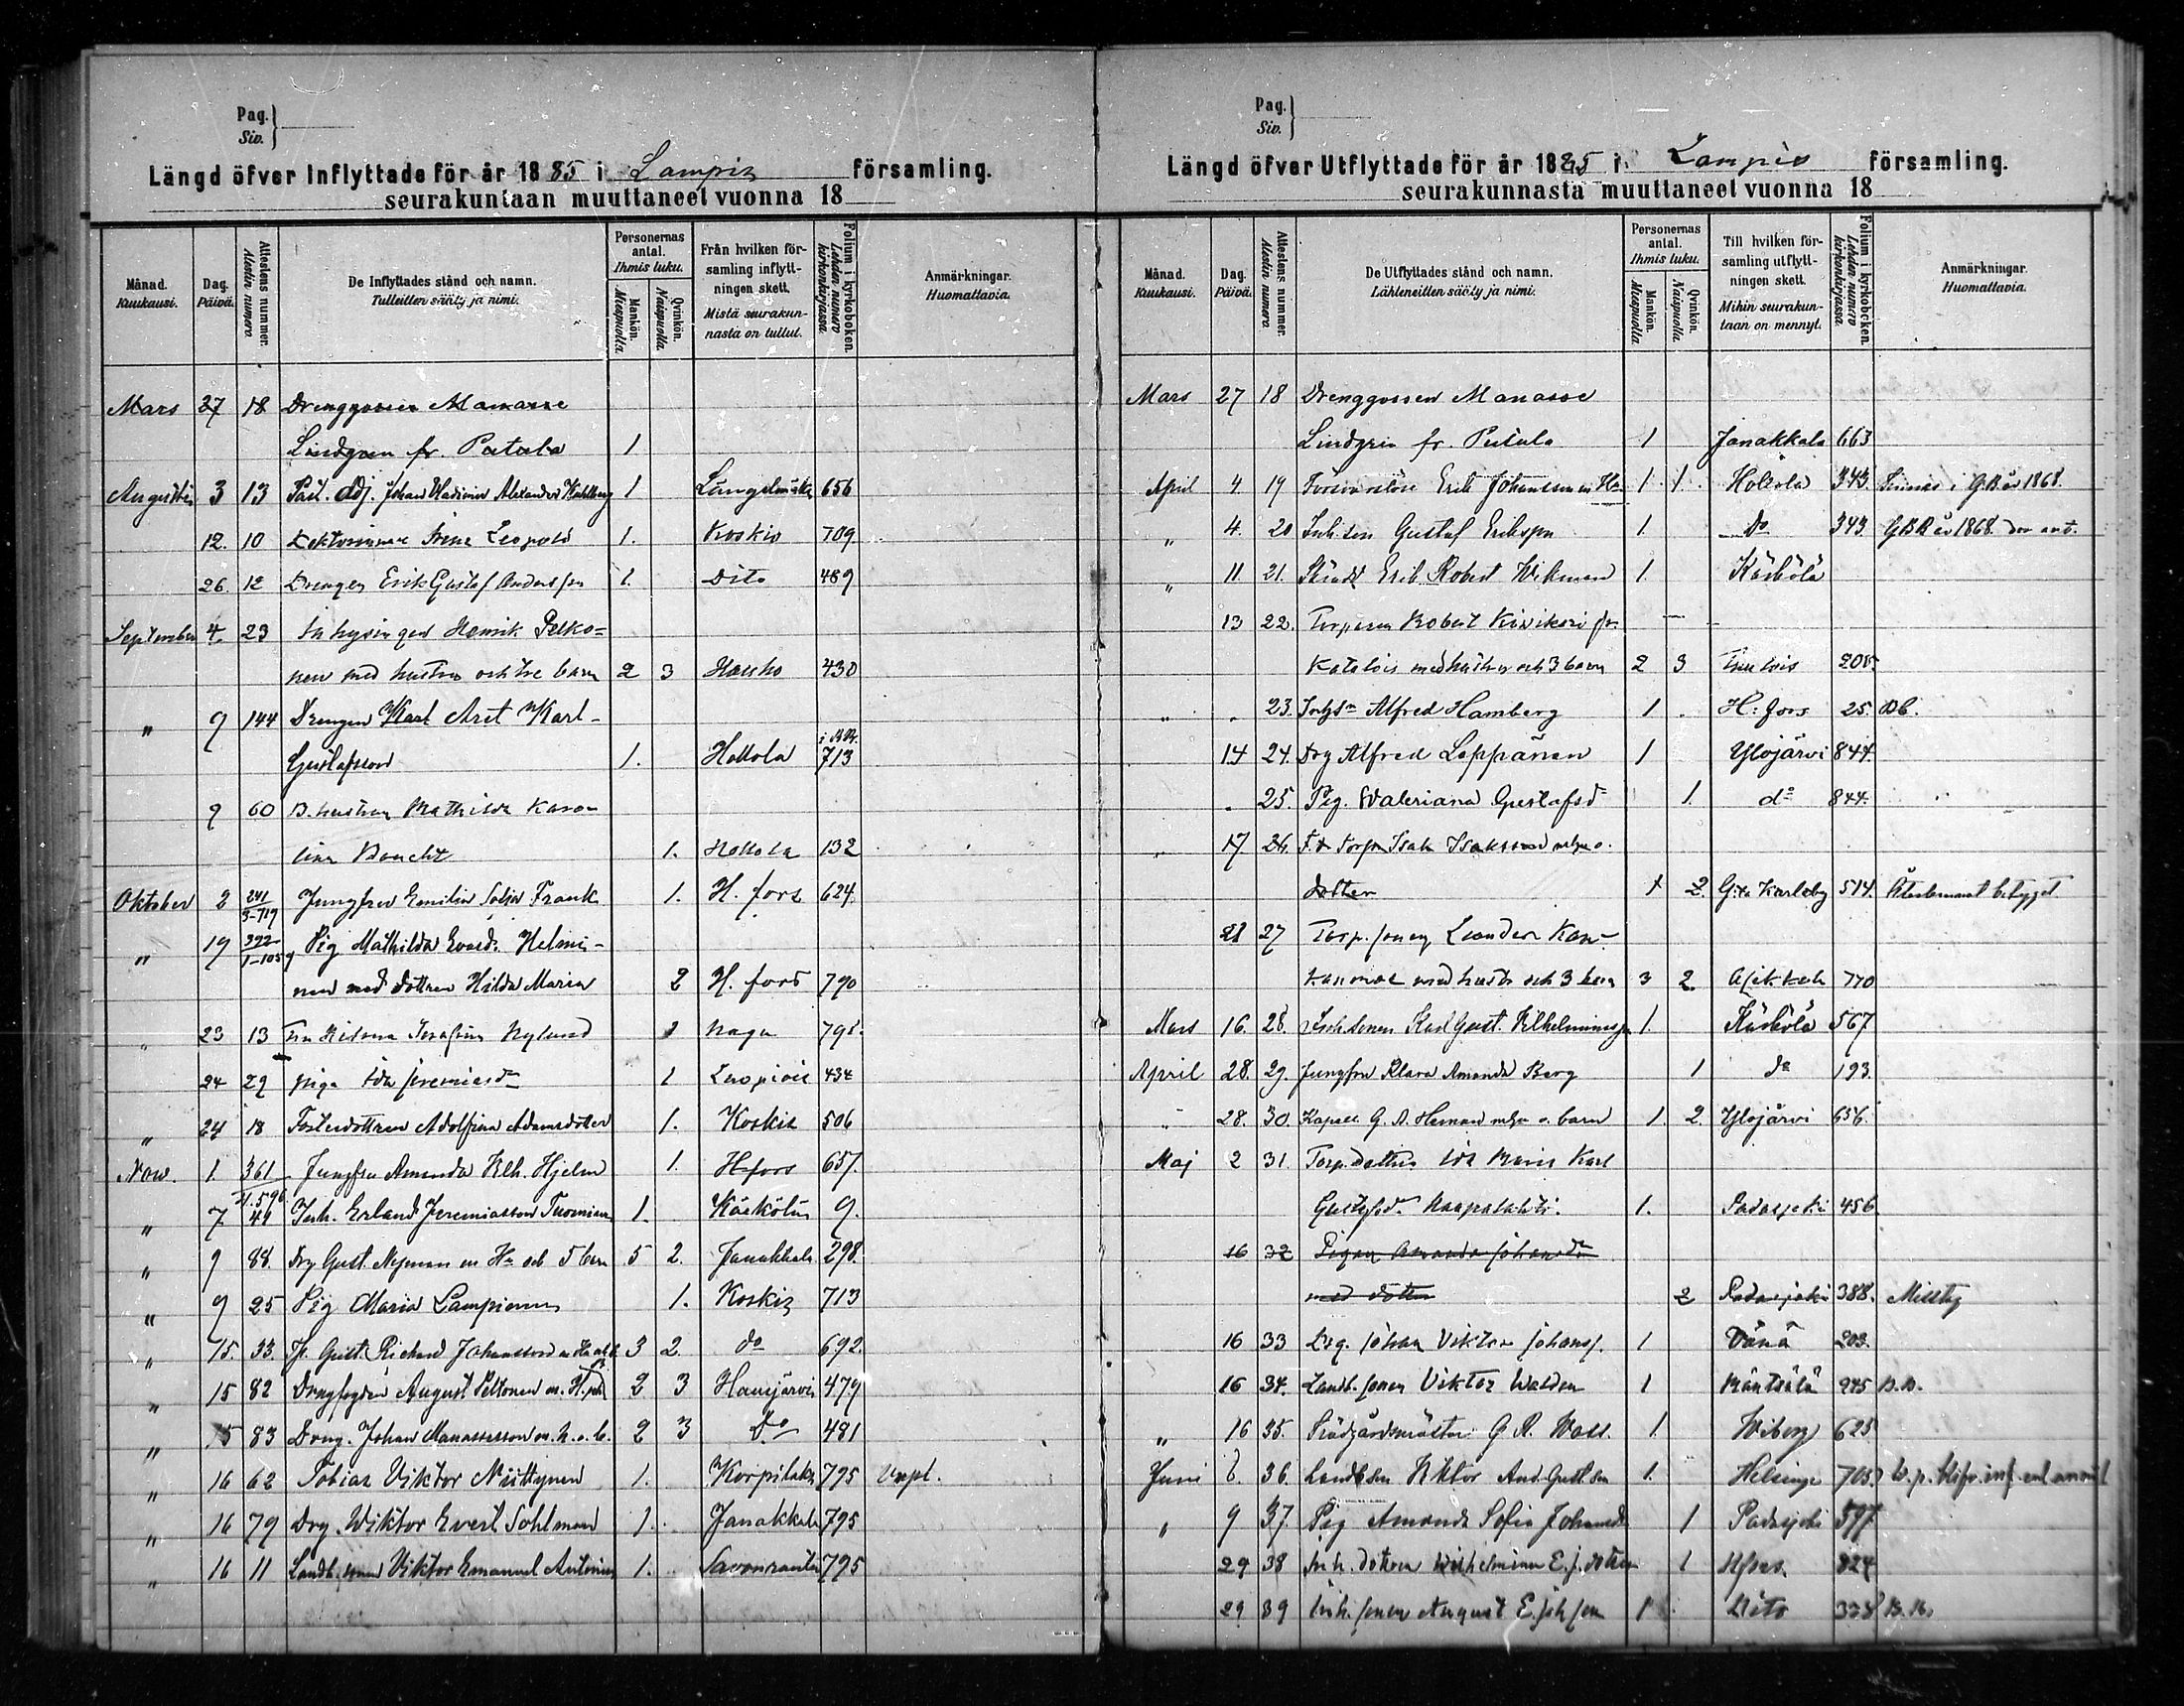 Pag.
Siv.
Längd öfver Inflyttade för år 1885 i Lampis församling.
seurakuntaan muuttaneet vuonna 18
Månad. Kuukausi.
Dag. Päivä.
Attestens nummer. Atestin numero
De Inflyttades stånd och namn. Tulleitten sääty ja nimi.
Personernas antal. Ihmis luku.
Mankön. Miespuolia
Qvinkön. Naispuolia
Från hvilken församling inflyttningen skett. Mistä seurakunnasta on tullut.
Folium i kyrkoboken. Lehden numero kirkonkirjassa
Anmärkningar. Huomattavia.
Mars 27 18 Drenggossen Manasse
Lindgren fr. Patala 1
Augusti 3 13 Past. Adj. Johan Wladimir Alexander Wahlberg 1 Längelmäki 656
12. 10 Leopold 1. Koskis 709
26. 12 Drengen Erik Gustaf Andersson 1. Dito 489
September 4. 23 Inhysingen Henrik Pelko=
nen med hustru och tre barn 2 3 Hauho 430
" 9 144 Drengen Karl Aret Karl-
Gustafsson 1. Hollola 713
9 60 B. hustrun Mathilda Karo-
lina 1. Hollola 132
Oktober 2 241 Jungfru Emilia Sofia Frank 1. H. fors 624
" 19 392 Pig Mathilda Helmi-
nen med dottren Hilda Maria 2 H. fors 790
23 13 Josefina Nylund 795
24 29 piga Ida Jeremiasdr 1 434
" 24 18 Fosterdottren Adolfina Adamsdotter 1. Koskis 506
Nov. 1. 361 Jungfru Amanda Vilh. Hjelm 1. H.fors 657.
" 7 49 Inh. Erland Jeremiasson Tuominen 1. Kärkölä 9.
" 9 88. Drg Gust. Nyman m Hu och 5 barn 5 2. Janakkala 298.
" 9 25 Pig Maria Lampinen 1. Koskis 713
" 15. 33. Gust. Richard Johansson 3 2. do 692.
" 15 82 Drengfogden August Peltonen m. 2 3 Hausjärvi 479
" 15 83 Dreng. Johan Manassesson m. h. o. b. 2 3 Do 481
" 16 62 Tobias Viktor Niittynen 1. Korpilaks 795
" 16 79 Drg. Wiktor Evert Sohlman 1. Janakkala 795
" 16 11 Landb. sonen Viktor Emanuel 1. Savonranta 795
Pag.
Siv.
Längd öfver Utflyttade för år 1885 i Lampis församling.
seurakunnasta muuttaneet vuonna 18
Månad. Kuukausi.
Dag. Päivä.
Attestens nummer. Atestin numero
De Utflyttades stånd och namn. Lähteneitten sääty ja nimi.
Personernas antal. Ihmis luku.
Mankön. Miespuolia
Qvinkön. Naispuolia
Till hvilken församling utflyttningen skett. Mihin seurakuntaan on mennyt.
Folium i kyrkoboken. Lehden numero kirkonkirjassa
Anmärkningar. Huomattavia.
Mars 27 18 Drenggossen Manasse
Lindgren fr. Putula 1 Janakkala 663
April 4. 19 Försvarslöse Erik Johansson m Hu 1. 1. Hollola 343. Finnes i GB år 1868.
" 4. 20 Inh.son Gustaf Eriksson 1. Do 343. GBB år 1868 ant.
" 11 21. Erik Robert Wikman 1. Kärkölä
13 22. Torparen Robert Kivikari fr.
Katalois med hustru och 3 barn 2 3 Tuulois 205
" 23. Alfred Hamberg 1 H:fors 25. Bb.
14 24. Drg Alfred Leppänen 1 Ylojärvi 844.
25. Pig. Waleriana Gustafsdr 1. do 844.
" 17 26. F.d. Torp. Isak Isaksson m hu o.
dotter 1 2. G:la Karleby 514. Återlemnat betyget
21 27 Torp. sonen Leander Kan-
med hustr och 3 barn 3 2. Asikkala 770
Mars 16. 28. Inh.sonen Karl Gust. Vilhelmsson 1. Kärkölä 567
April 28. 29. Jungfru Klara Amanda Berg 1 do 193.
" 28. 30. Kapell. G. A. Heman m hu o. barn 1. 2. Ylojärvi 656.
Maj 2 31. Torp.dottren Ida Maria Karl
Gustafsdr 1. Padasjoki 456
16 32 Pigan Amanda Johansdr
med dotter 2 Padasjoki 388. Misstag
16 33 Drg. Johan Viktor Johanss. 1 Vånå 203.
16 34. Landb. sonen Viktor Walden 1 Mäntsälä 245 B.B.
" 16 35. Trädgårdsmästar G. R. Wass. 1. Wiborg 625
Juni 6. 36. Landb.son Viktor And. Gust.son 1. Helsinge 705
" 9 37. Pig Amanda Sofia Johansdr 1 Padasjoki 397
29 38 Inh. dottren Wilhelmina E.j.dotter 1 H.fors. 324
29 39 Inh. sonen August E.johson 1 Dito 328 B.B.